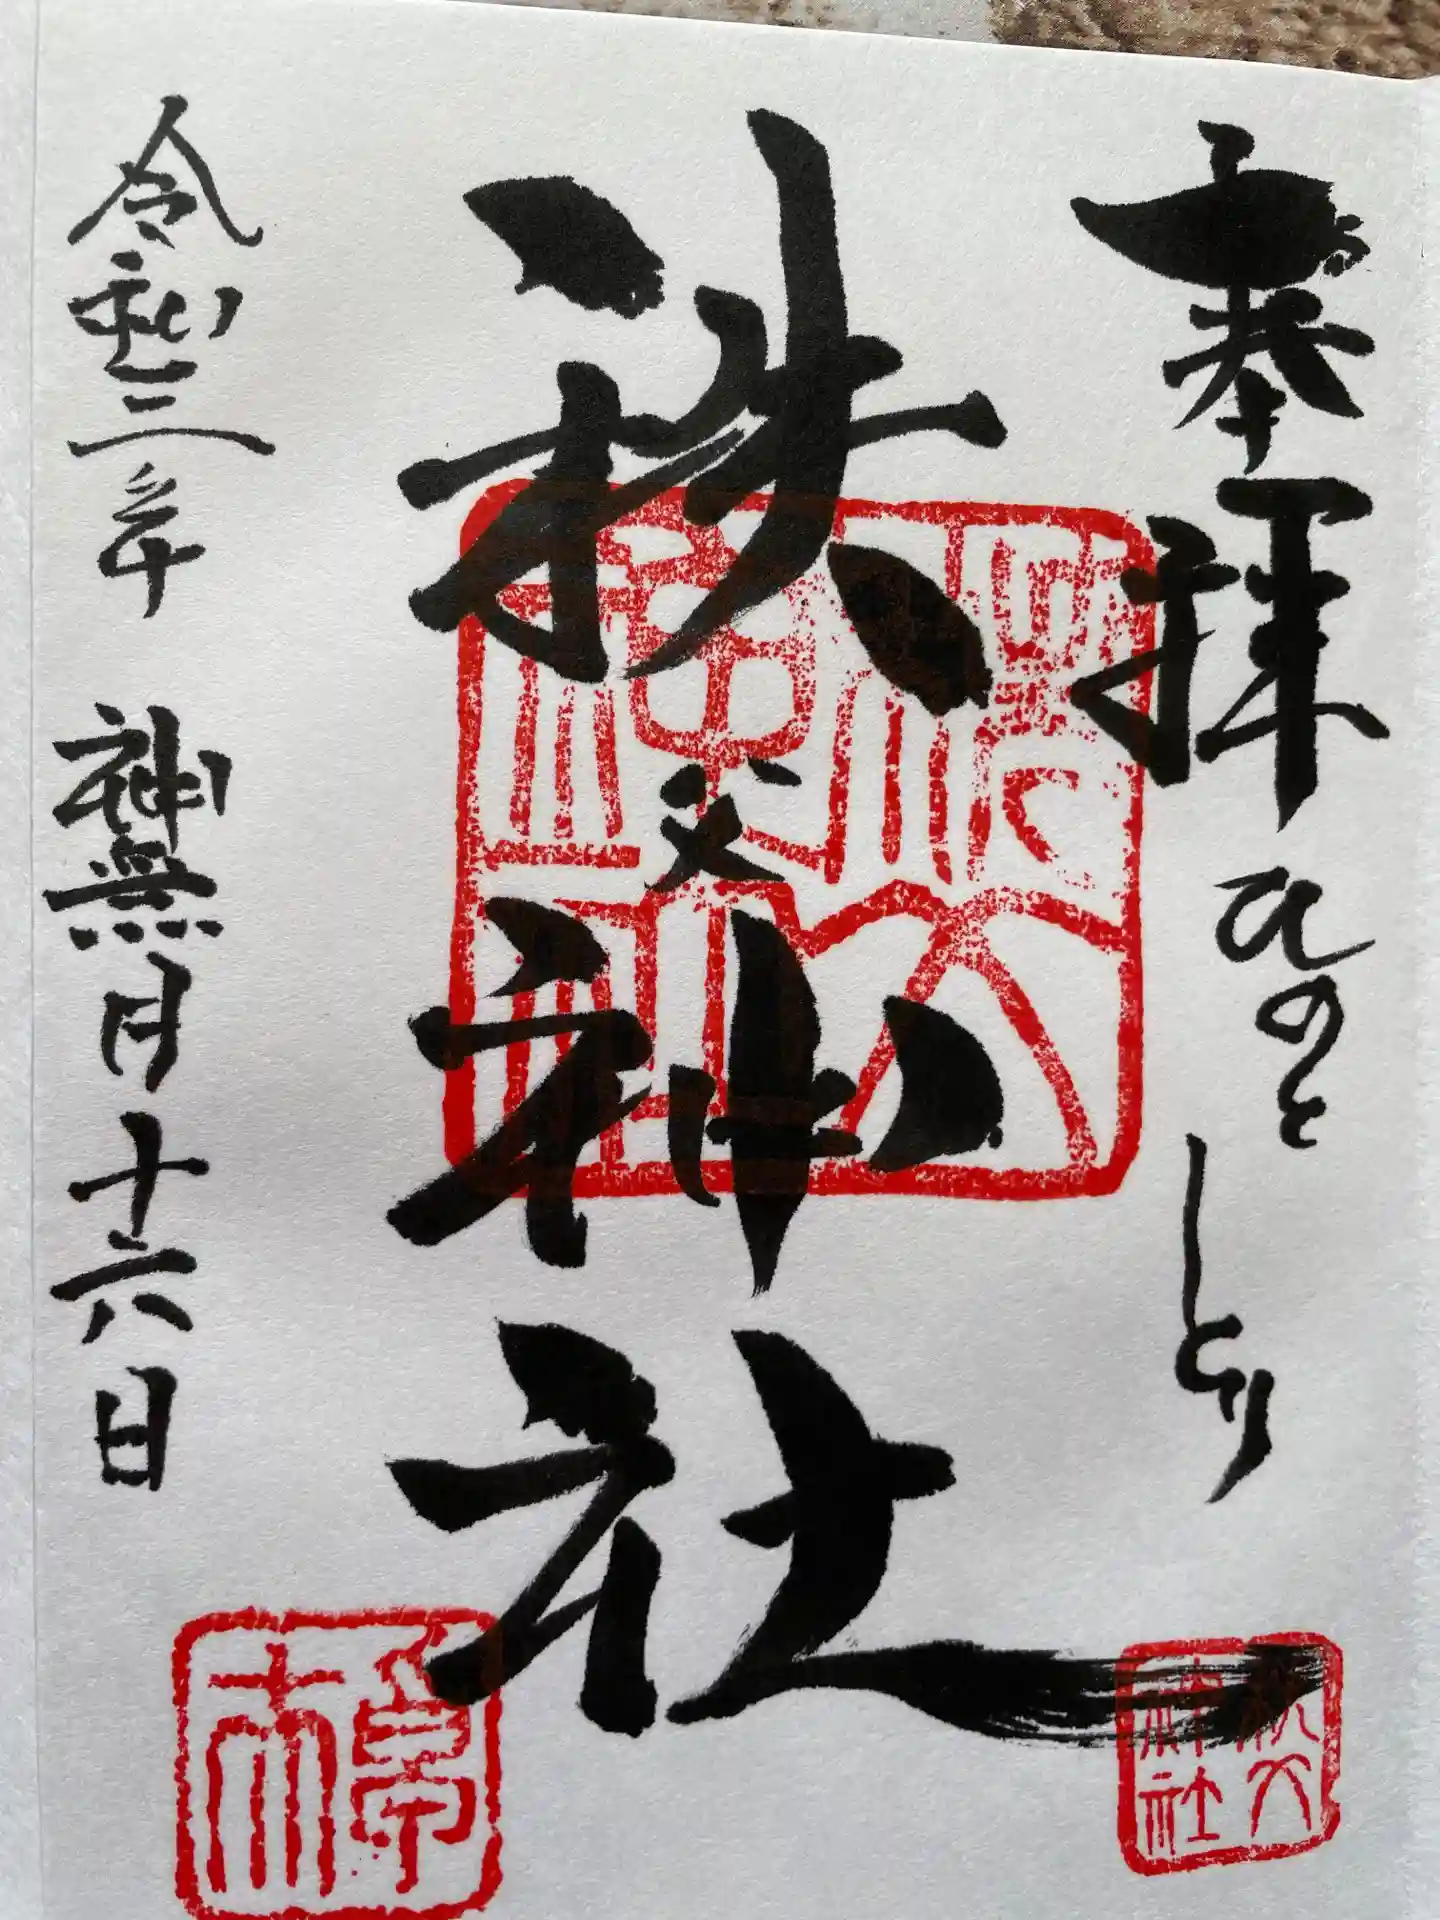 奉拝 ひのと とり
秩父神社
令和三年 神無月十六日
秩父神社
秩父神社